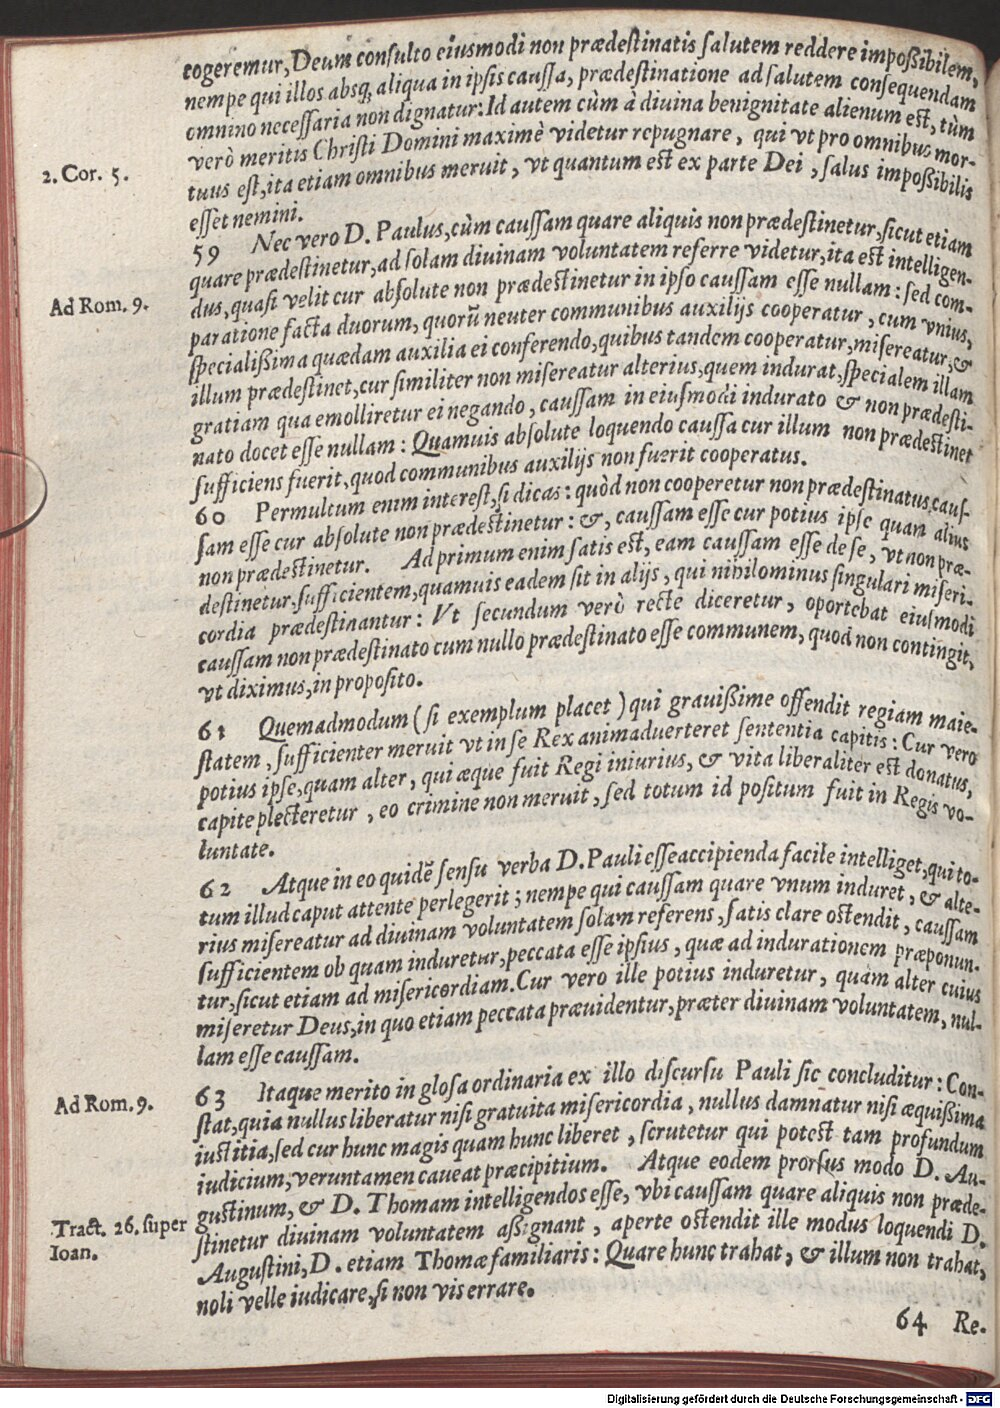 cogeremur, Deum consulto eiusmodi non prædestinatis salutem reddere impoßibilem,
nempe qui illos absq; aliqua in ipsis caussa, prædestinatione ad salutem consequendam
omnino necessaria non dignatur: Id autem cùm à diuina benignitate alienum est, tùm
verò meritis Christi Domini maximè videtur repugnare, qui vt pro omnibus mor-
2. Cor. 5. tuus est, ita etiam omnibus meruit, vt quantum est ex parte Dei, salus impoßibilis
esset nemini.
59 Nec vero D. Paulus, cùm caussam quare aliquis non prædestinetur, sicut etiam
quare prædestinetur, ad solam diuinam voluntatem referre videtur, ita est intelligen-
Ad Rom. 9. dus, quasi velit cur absolute non prædestinetur in ipso caussam esse nullam: sed com-
paratione facta duorum, quorũ neuter communibus auxilijs cooperatur, cum vnius,
specialißima quædam auxilia ei conferendo, quibus tandem cooperatur, misereatur, &
illum prædestinet, cur similiter non misereatur alterius, quem indurat, specialem illam
gratiam qua emolliretur ei negando, caussam in eiusmodi indurato & non prædesti-
nato docet esse nullam: Quamuis absolute loquendo caussa cur illum non prædestinet
sufficiens fuerit, quod communibus auxilijs non fuerit cooperatus.
60 Permultum enim interest, si dicas: quòd non cooperetur non prædestinatus, caus-
sam esse cur absolute non prædestinetur: &, caussam esse cur potius ipse quam alius
non prædestinetur. Ad primum enim satis est, eam caussam esse de se, vt non præ-
destinetur, sufficientem, quamuis eadem sit in alijs, qui nihilominus singulari miseri-
cordia prædestinantur: Vt secundum verò recte diceretur, oportebat eiusmodi
caussam non prædestinato cum nullo prædestinato esse communem, quod non contingit,
vt diximus, in proposito.
61 Quemadmodum (si exemplum placet) qui grauißime offendit regiam maie-
statem, sufficienter meruit vt in se Rex animaduerteret sententia capitis: Cur vero
potius ipse, quam alter, qui æque fuit Regi iniurius, & vita liberaliter est donatus,
capite plecteretur, eo crimine non meruit, sed totum id positum fuit in Regis vo-
luntate.
62 Atque in eo quidẽ sensu verba D. Pauli esse accipienda facile intelliget, qui to-
tum illud caput attente perlegerit; nempe qui caussam quare vnum induret, & alte-
rius misereatur ad diuinam voluntatem solam referens, satis clare ostendit, caussam
sufficientem ob quam induretur, peccata esse ipsius, quæ ad indurationem præponun-
tur, sicut etiam ad misericordiam. Cur vero ille potius induretur, quàm alter cuius
miseretur Deus, in quo etiam peccata præuidentur, præter diuinam voluntatem, nul-
lam esse caussam.
Ad Rom. 9. 63 Itaque merito in glosa ordinaria ex illo discursu Pauli sic concluditur: Con-
stat, quia nullus liberatur nisi gratuita misericordia, nullus damnatur nisi æquißima
iustitia, sed cur hunc magis quam hunc liberet, scrutetur qui potest tam profundum
iudicium, veruntamen caueat præcipitium. Atque eodem prorsus modo D. Au-
gustinum, & D. Thomam intelligendos esse, vbi caussam quare aliquis non præde-
Tract. 26. super stinetur diuinam voluntatem aßignant, aperte ostendit ille modus loquendi D.
Ioan. Augustini, D. etiam Thomæ familiaris: Quare hunc trahat, & illum non trahat,
noli velle iudicare, si non vis errare.
64 Re-
Digitalisierung gefördert durch die Deutsche Forschungsgemeinschaft - DFG